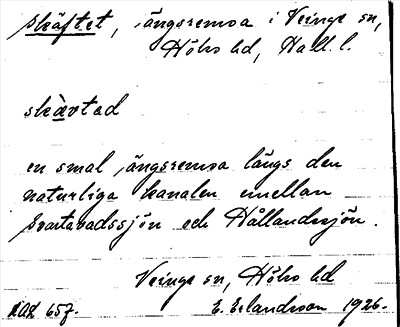 skäftet, ängsremsa i Veinge sn,
Höks hd, Hall. l.
skàvtəd
en smal ängsremsa längs den
naturliga kanalen emellan
Svartavadssjön och Hållandssjön.
Veinge sn, Höks hd
657. E. Erlandsson 1926.